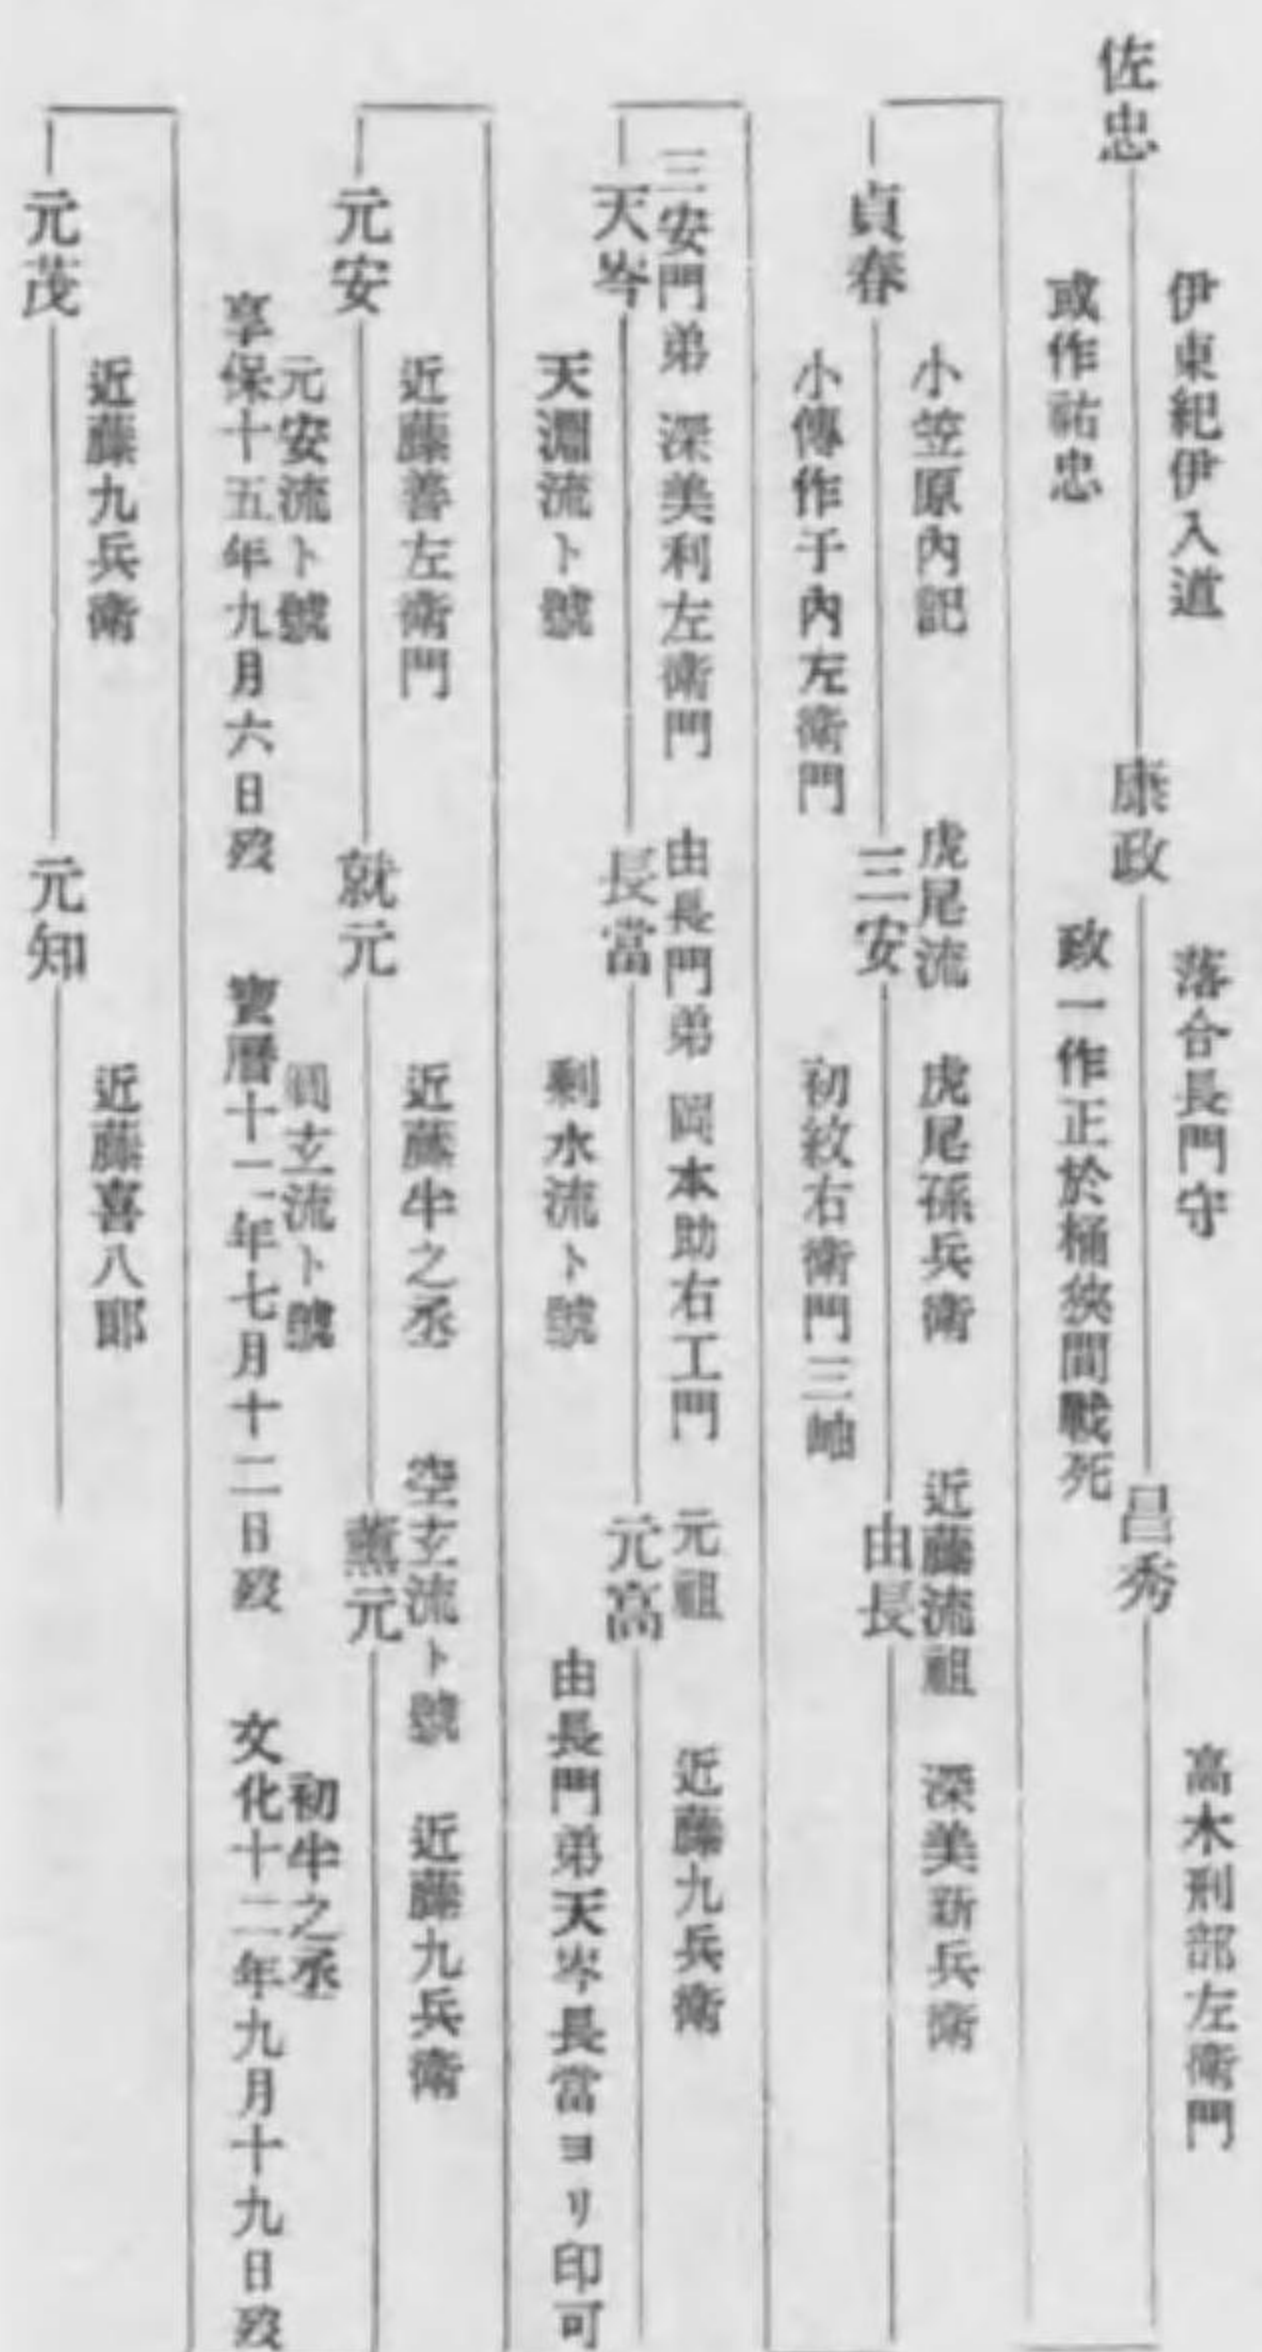 佐忠
伊東紀伊入道
或作祐忠
康政
落合長門守
政一作正於桶狹間戰死
昌秀
高木刑部左衞門
貞春
小笠原內記
小傳作于內左衞門
三安
虎尾流　虎尾孫兵衞
初紋右衞門三岫
由長
近藤流祖　深美新兵衞
天岑
三安門弟　深美利左衞門
天淵流ト號
長當
由長門弟　岡本助右工門
剩水流ト號
元高
元祖　近藤九兵衞
由長門弟天岑長當ヨリ印可
元安
近藤善左衞門
元安流ト號
享保十五年九月六日歿
就元
近藤牛之丞
圓玄流ト號
寶曆十二年七月十二日歿
薫元
空玄流ト號　近藤九兵衞
初牛之丞
文化十二年九月十九日歿
元茂
近藤九兵衞
元知
近藤喜八郎